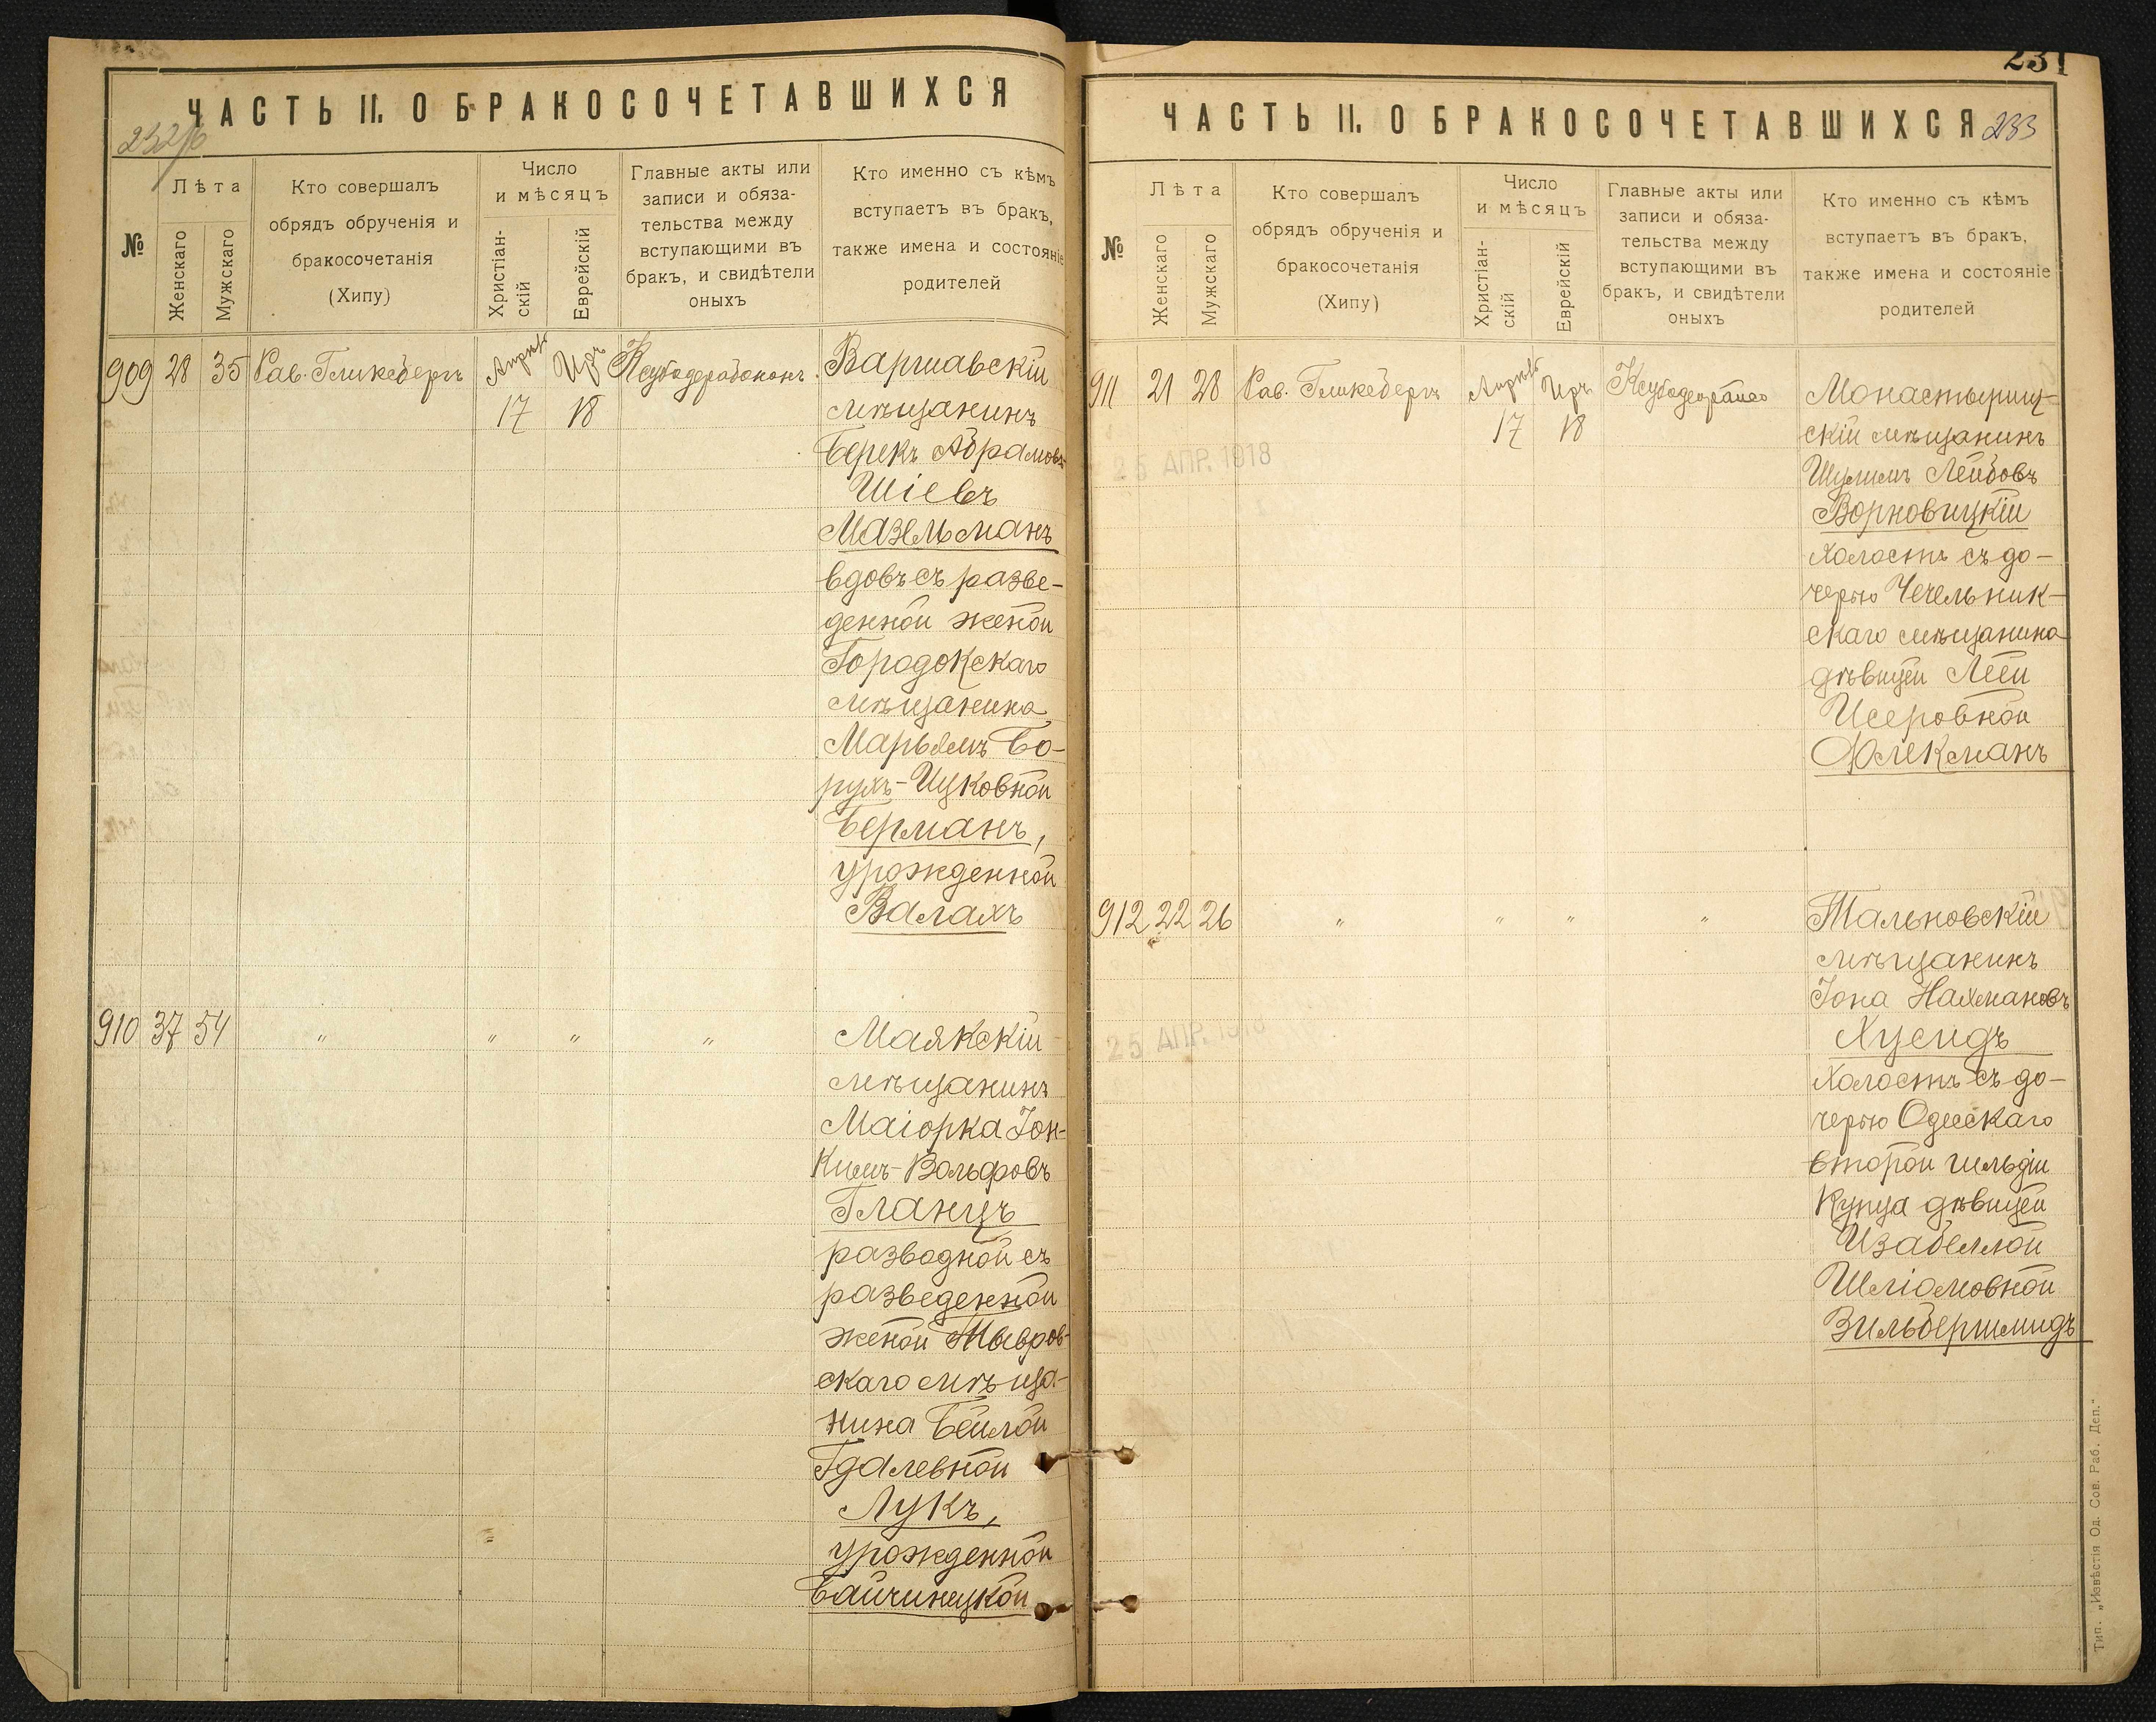 ЧАСТЬ II. О БРАКОСОЧЕТАВШИХСЯ
№
Лѣта
Женскаго
Мужскаго
Кто совершалъ
обрядъ обрученія и
бракосочетанія
(Хипу)
Число
и мѣсяцъ
Христіан-
скій
Еврейскій
Главные акты или
записи и обяза-
тельства между
вступающими въ
бракъ, и свидѣтели
оныхъ
Кто именно съ кѣмъ
вступаетъ въ бракъ,
также имена и состояніе
родителей
909 28 35 Рав. Гликсбергъ
Апрѣль
17
Иръ
18
Варшавскій
мѣщанинъ
Берекъ Абрамовъ
Шіевъ
Мазельманъ
вдовъ съ разве-
денной женой
Городокскаго
мѣщанина
Марьямъ Бо-
рухъ-Ицковной
Берманъ,
урожденной
Валахъ
910 37 54 " " " "
Маякскій
мѣщанинъ
Маіорка Іон-
Кипъ-Вольфовъ
Гланцъ
разводной съ
разведенной
женой
скаго мѣща-
нина Бейлой
Гдалевной
Лукъ,
урожденной
Байчинецкой
231
ЧАСТЬ II. О БРАКОСОЧЕТАВШИХСЯ 233
№
Лѣта
Женскаго
Мужскаго
Кто совершалъ
обрядъ обрученія и
бракосочетанія
(Хипу)
Число
и мѣсяцъ
Христіан-
скій
Еврейскій
Главные акты или
записи и обяза-
тельства между
вступающими въ
бракъ, и свидѣтели
оныхъ
Кто именно съ кѣмъ
вступаетъ въ бракъ,
также имена и состояніе
родителей
911 21 28 Рав. Гликсбергъ
Апрѣль
17
Иръ
18
25 АПР. 1918
Монастырищ-
скій мѣщанинъ
Шулимъ Лейбовъ
Ворновицкій
холостъ съ до-
черью Чечельник-
скаго мѣщанина
дѣвицей Леей
Исеровной
Флекманъ
912 22 26 " " " "
25 АПР. 1918
Тальновскій
мѣщанинъ
Іона Нахмановъ
Хусидъ
холостъ съ до-
черью Одесскаго
второй гильдіи
купца дѣвицей
Изабеллой
Шліомовной
Зильбершмидъ
Тип. „Извѣстія Од. Сов. Раб. Деп."